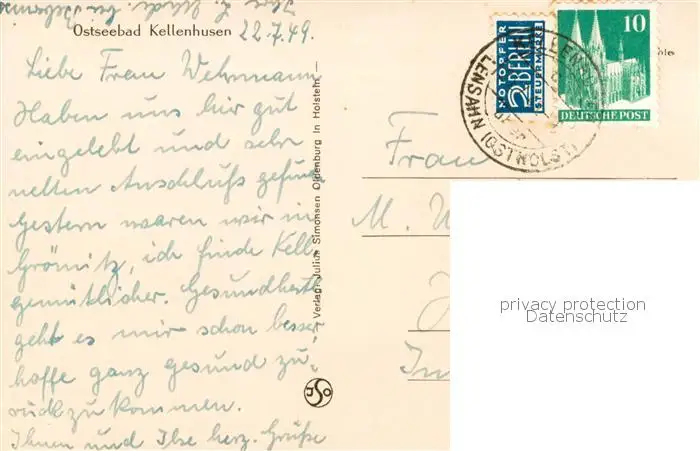 Ostseebad Kellenhusen 22.7.49.
Liebe Frau Wehrmann
Haben uns hir gut
eingelebt und sehr
netten Anschluß gefun
gestern waren wir in
Grömitz, ich finde Kell
gemütlicher. Gesundheitl
geht es mir schon besser
hoffe ganz gesund zu
rück zu kommen.
Ihnen und Ilse herz. Grüße
Verlag: Julius Simonsen Oldenburg in Holstein
NOTOPFER
2 BERLIN
STEUERMARKE
10
DEUTSCHE POST
LENSAHN (OSTHOLST)
Frau
M. W
privacy protection
Datenschutz